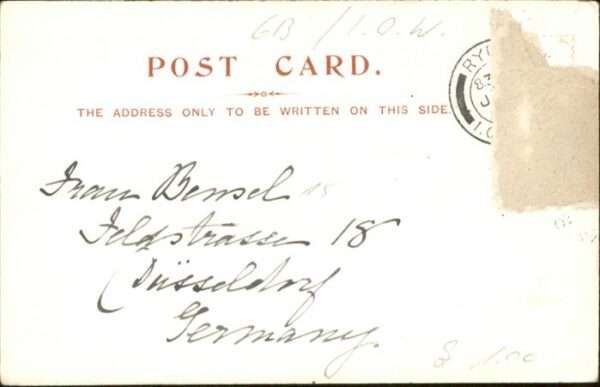 GB / I.O.W.
POST CARD.
THE ADDRESS ONLY TO BE WRITTEN ON THIS SIDE.
RY
83
J
I.O
Frau Bensel
Feldstrasse 18
Düsseldorf
Germany.
$ 1.00